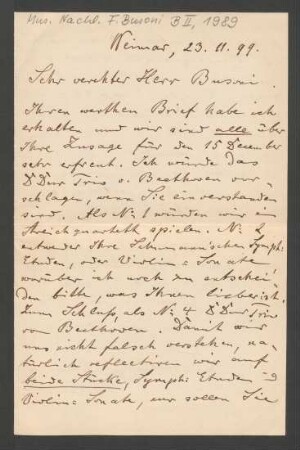 Mus. Nachl. F. Busoni B II, 1989
Weimar, 23. 11. 99.
Sehr verehrter Herr Busoni.
Ihren werthen Brief habe ich
erhalten und wir sind alle über
Ihre Zusage für den 15 December
sehr erfreut. Ich würde das
D Dur Trio v. Beethoven vor-
schlagen, wenn Sie einverstanden
sind. Als No 1 würden wir ein
Streichquartett spielen. No 2
entweder Ihre Schumann'schen Symph:
Etuden, oder Violin = Sonate
worüber ich noch den entschei
den bitte, was Ihnen lieber ist.
Zum Schluß, als No 4 D Dur Trio
von Beethoven. Damit wir
uns nicht falsch verstehen, na-
türlich reflectiren wir auf
beide Stücke, Symph: Etuden =
Violin = Sonate, nur sollen Sie